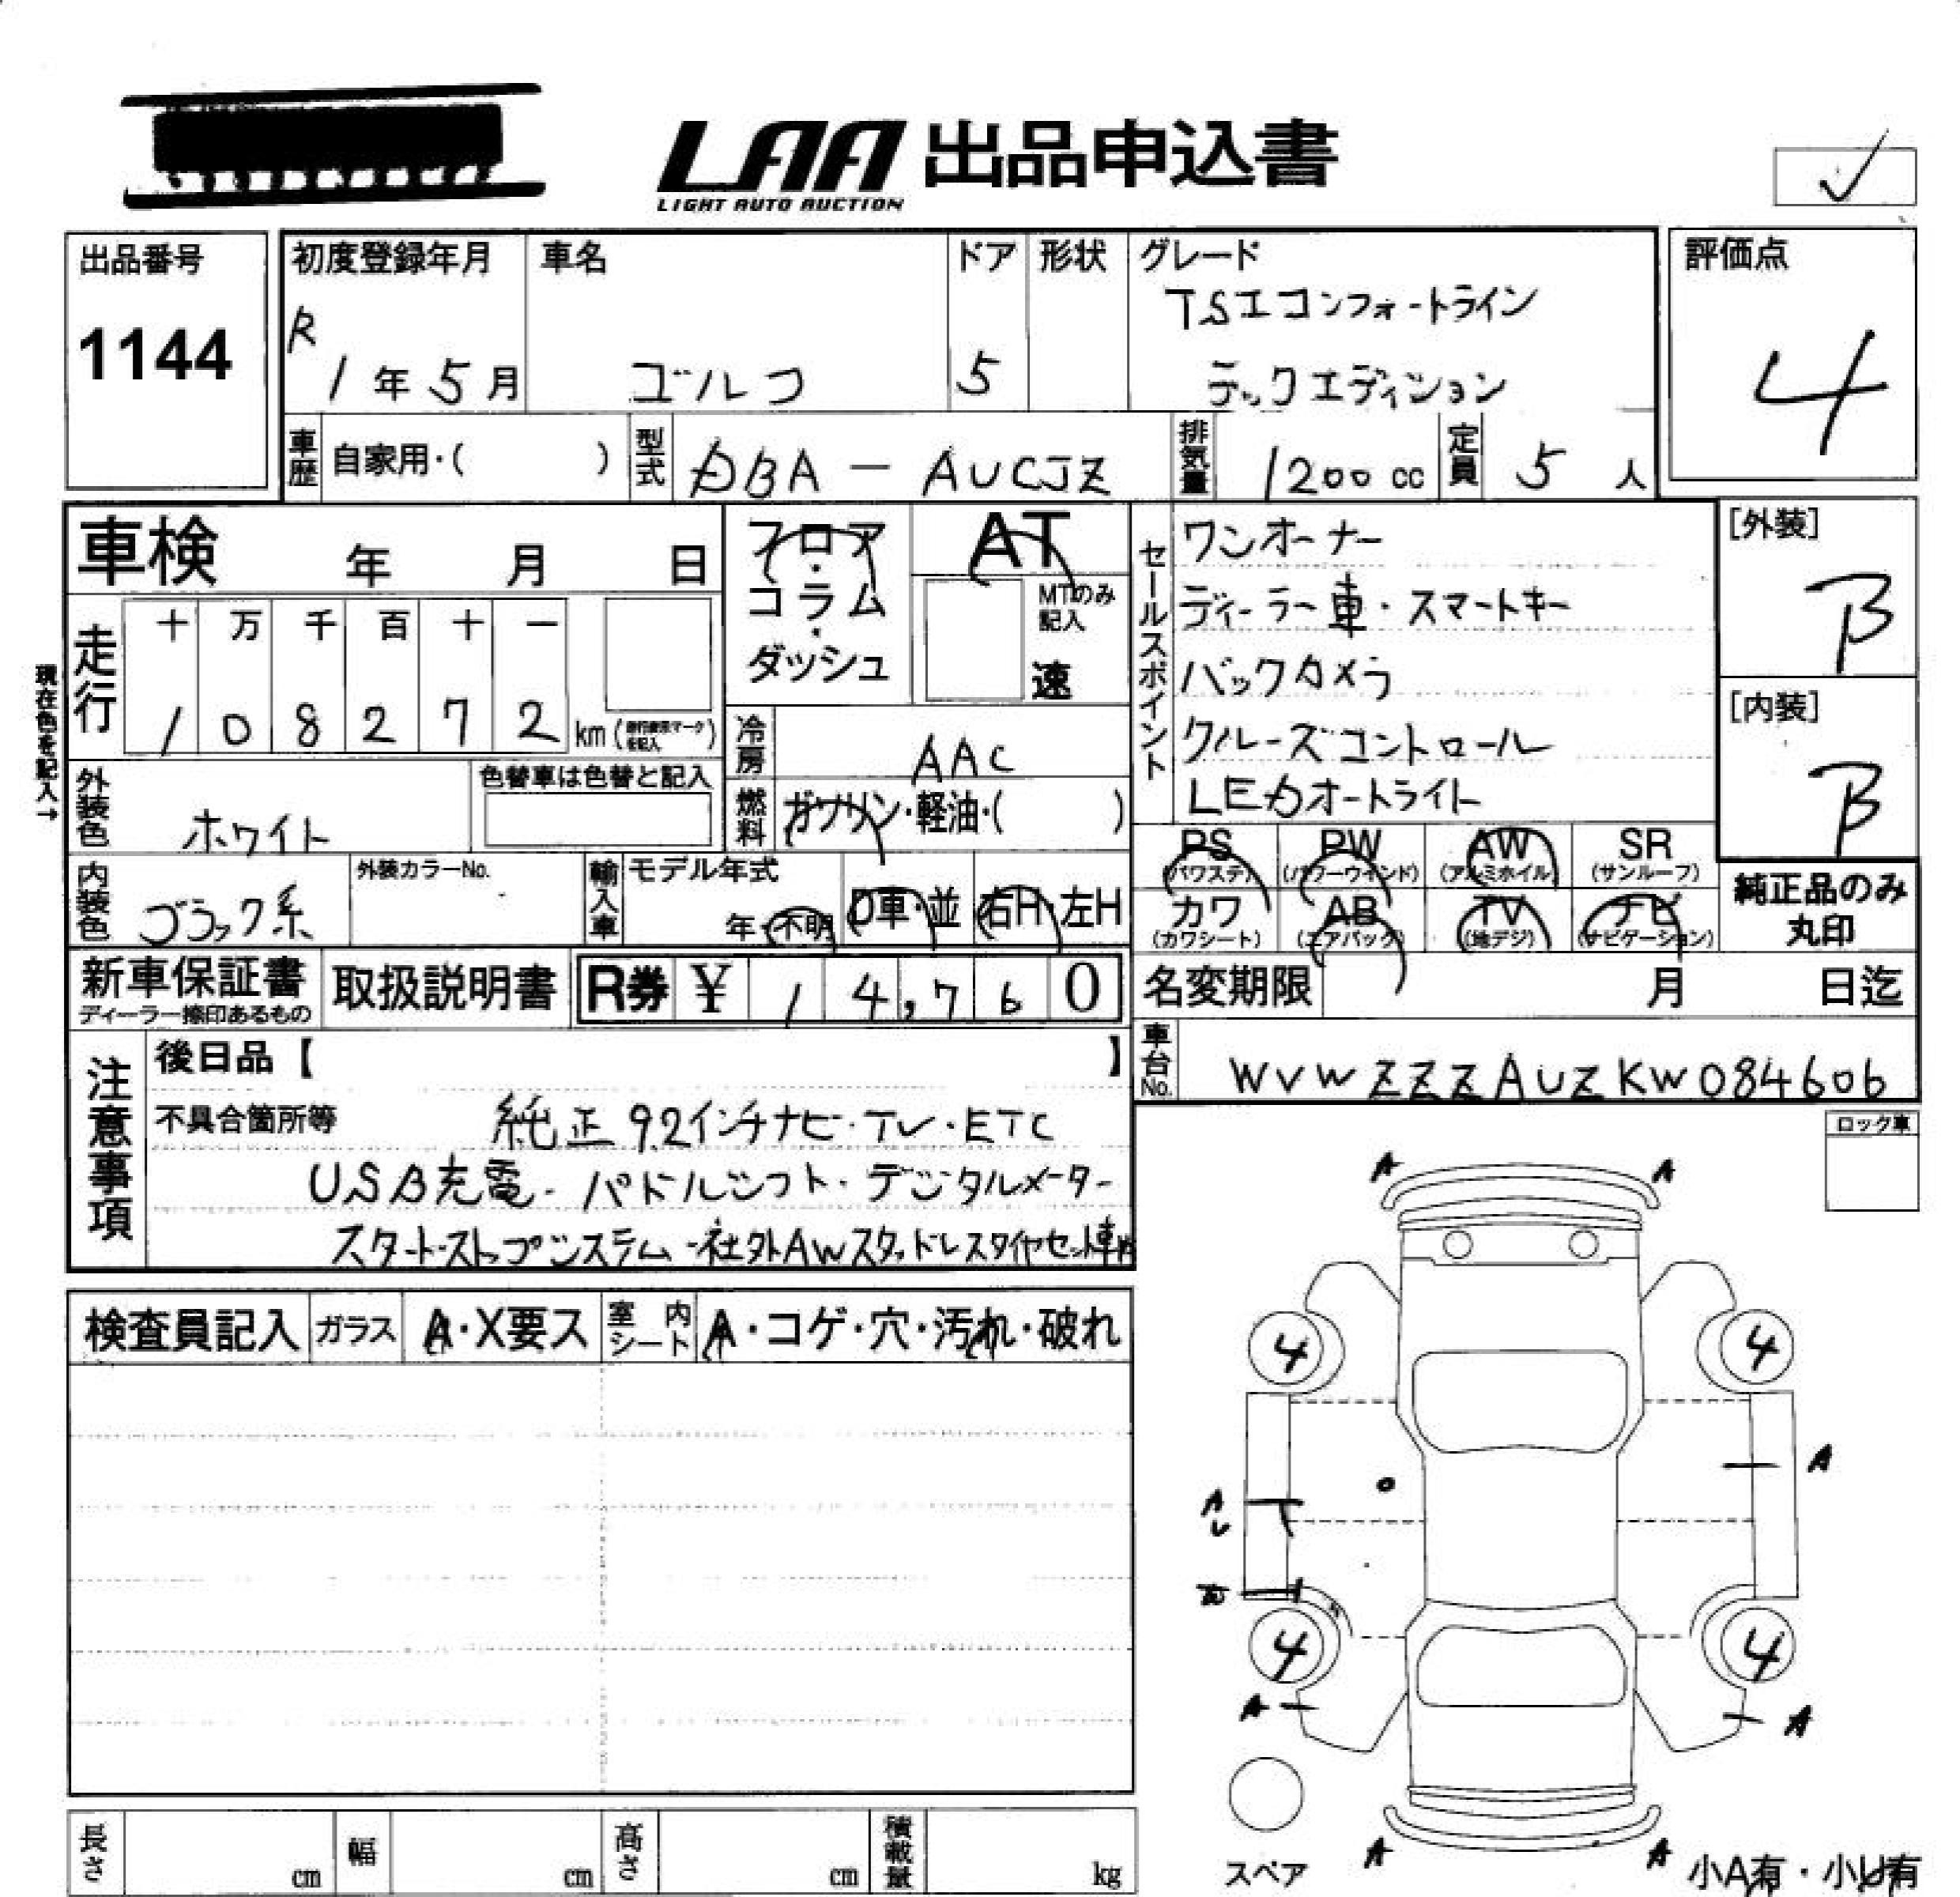 LAA 出品申込書
LIGHT AUTO AUCTION
出品番号
1144
初度登録年月
R
1年5月
車名
ゴルフ
ドア
5
形状
グレード
TSIコンフォートライン
テックエディション
評価点
4
車歴 自家用・( )
型式 DBA-AUCJZ
排気量 1200cc
定員 5人
車検 年 月 日
走行
十 万 千 百 十 一
1 0 8 2 7 2 km
現在色を記入→
外装色 ホワイト
色替車は色替と記入
内装色 ブラック系
外装カラーNo.
フロア・コラム・ダッシュ
AT
MTのみ記入
速
冷房 AAC
燃料 ガソリン・軽油・( )
輸入車 モデル年式
年・不明
D車・並 右H 左H
セールスポイント
ワンオーナー
ディーラー車・スマートキー
バックカメラ
クルーズコントロール
LEDオートライト
[外装]
B
[内装]
B
PS(パワステ) PW(パワーウインド) AW(アルミホイル) SR(サンルーフ)
カワ(カワシート) AB(エアバック) TV(地デジ) ナビ(ナビゲーション)
純正品のみ
丸印
新車保証書
ディーラー捺印あるもの
取扱説明書
R券 ¥ 14,760
名変期限 月 日迄
車台No. WVWZZZAUZKW084606
注意事項
後日品【 】
不具合箇所等 純正9.2インチナビ・TV・ETC
USB充電・パドルシフト・デジタルメーター
スタートストップシステム・社外AWスタッドレスタイヤセット車内
検査員記入 ガラス A・X要ス 室内シート A・コゲ・穴・汚れ・破れ
ロック車
A A
4 4
A
A
4 4
A A
A A
スペア
小A有・小U有
長さ cm 幅 cm 高さ cm 積載量 kg